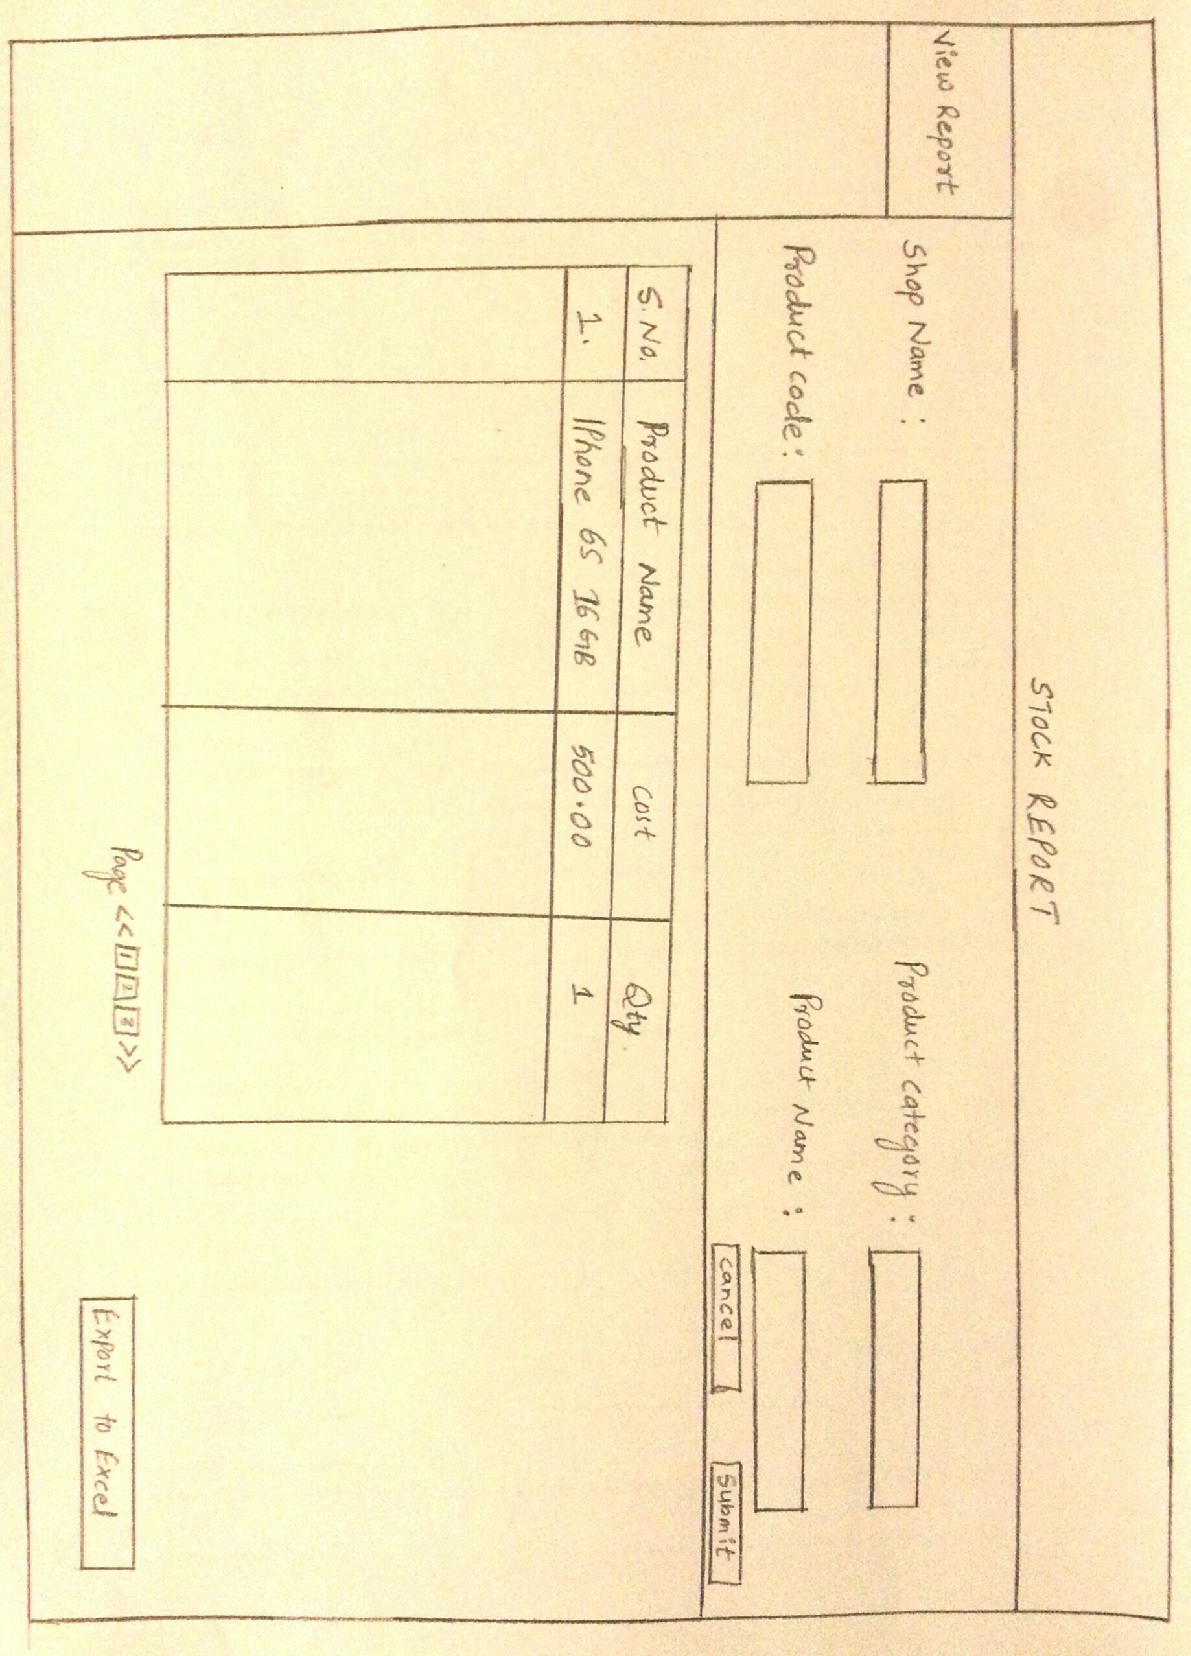 STOCK REPORT
View Report
Shop Name :
Product category :
Product code :
Product Name :
cancel
Submit
S. No. Product Name cost Qty.
1. IPhone 6S 16 GB 500.00 1
Page << 1 2 3 >>
Export to Excel